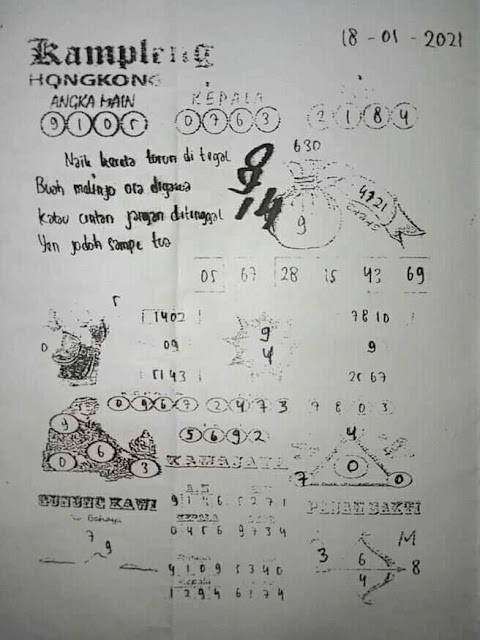 18 - 01 - 2021
Kampleng
HONGKONG
ANGKA MAIN
9 1 0 5
KEPALA
0 7 6 3
2 1 8 4
Naik kereta turun di tegal
Buah malinjo ora digawa
Kalau cintan jangan ditinggal
Yen jodoh sampe tua
9
14
630
9
4721
05 67 28 15 43 69
5
0
1402
09
5143
9
4
7810
9
2567
0 9 6 7 2 4 7 3 7 8 0 3
5 6 9 2
9
0 6 3
KAWAJATI
4
7 0 0
GUNUNG KAWI
Bahaya
7
9
9 1 4 6 5 2 7 1
KEPALA
0 4 5 6 9 7 3 4
9 1 0 9 5 3 4 0
Kepala
1 2 9 4 6 1 7 4
PANAH SAKTI
M
3 6 8
4